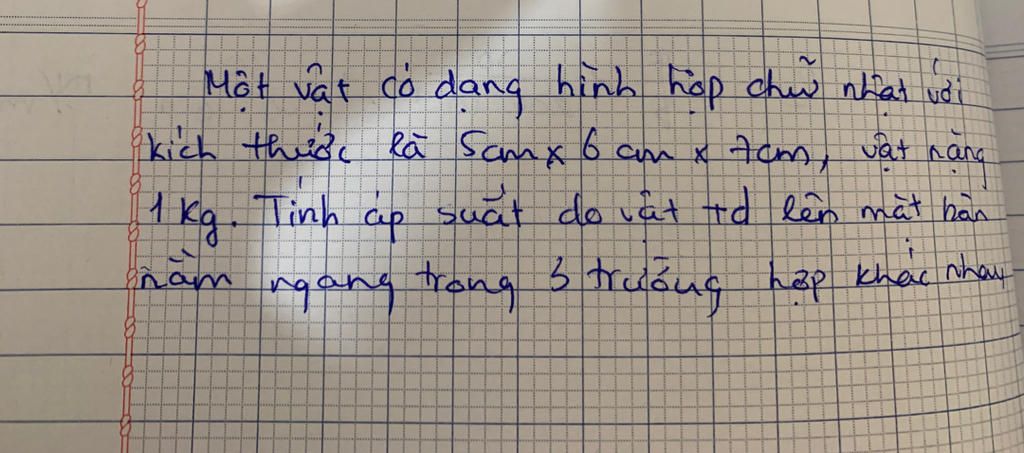 Một vật có dạng hình hộp chữ nhật với
kích thước là 5cm x 6 cm x 7cm, vật nặng
1 kg. Tính áp suất do vật td lên mặt bàn
nằm ngang trong 3 trường hợp khác nhau